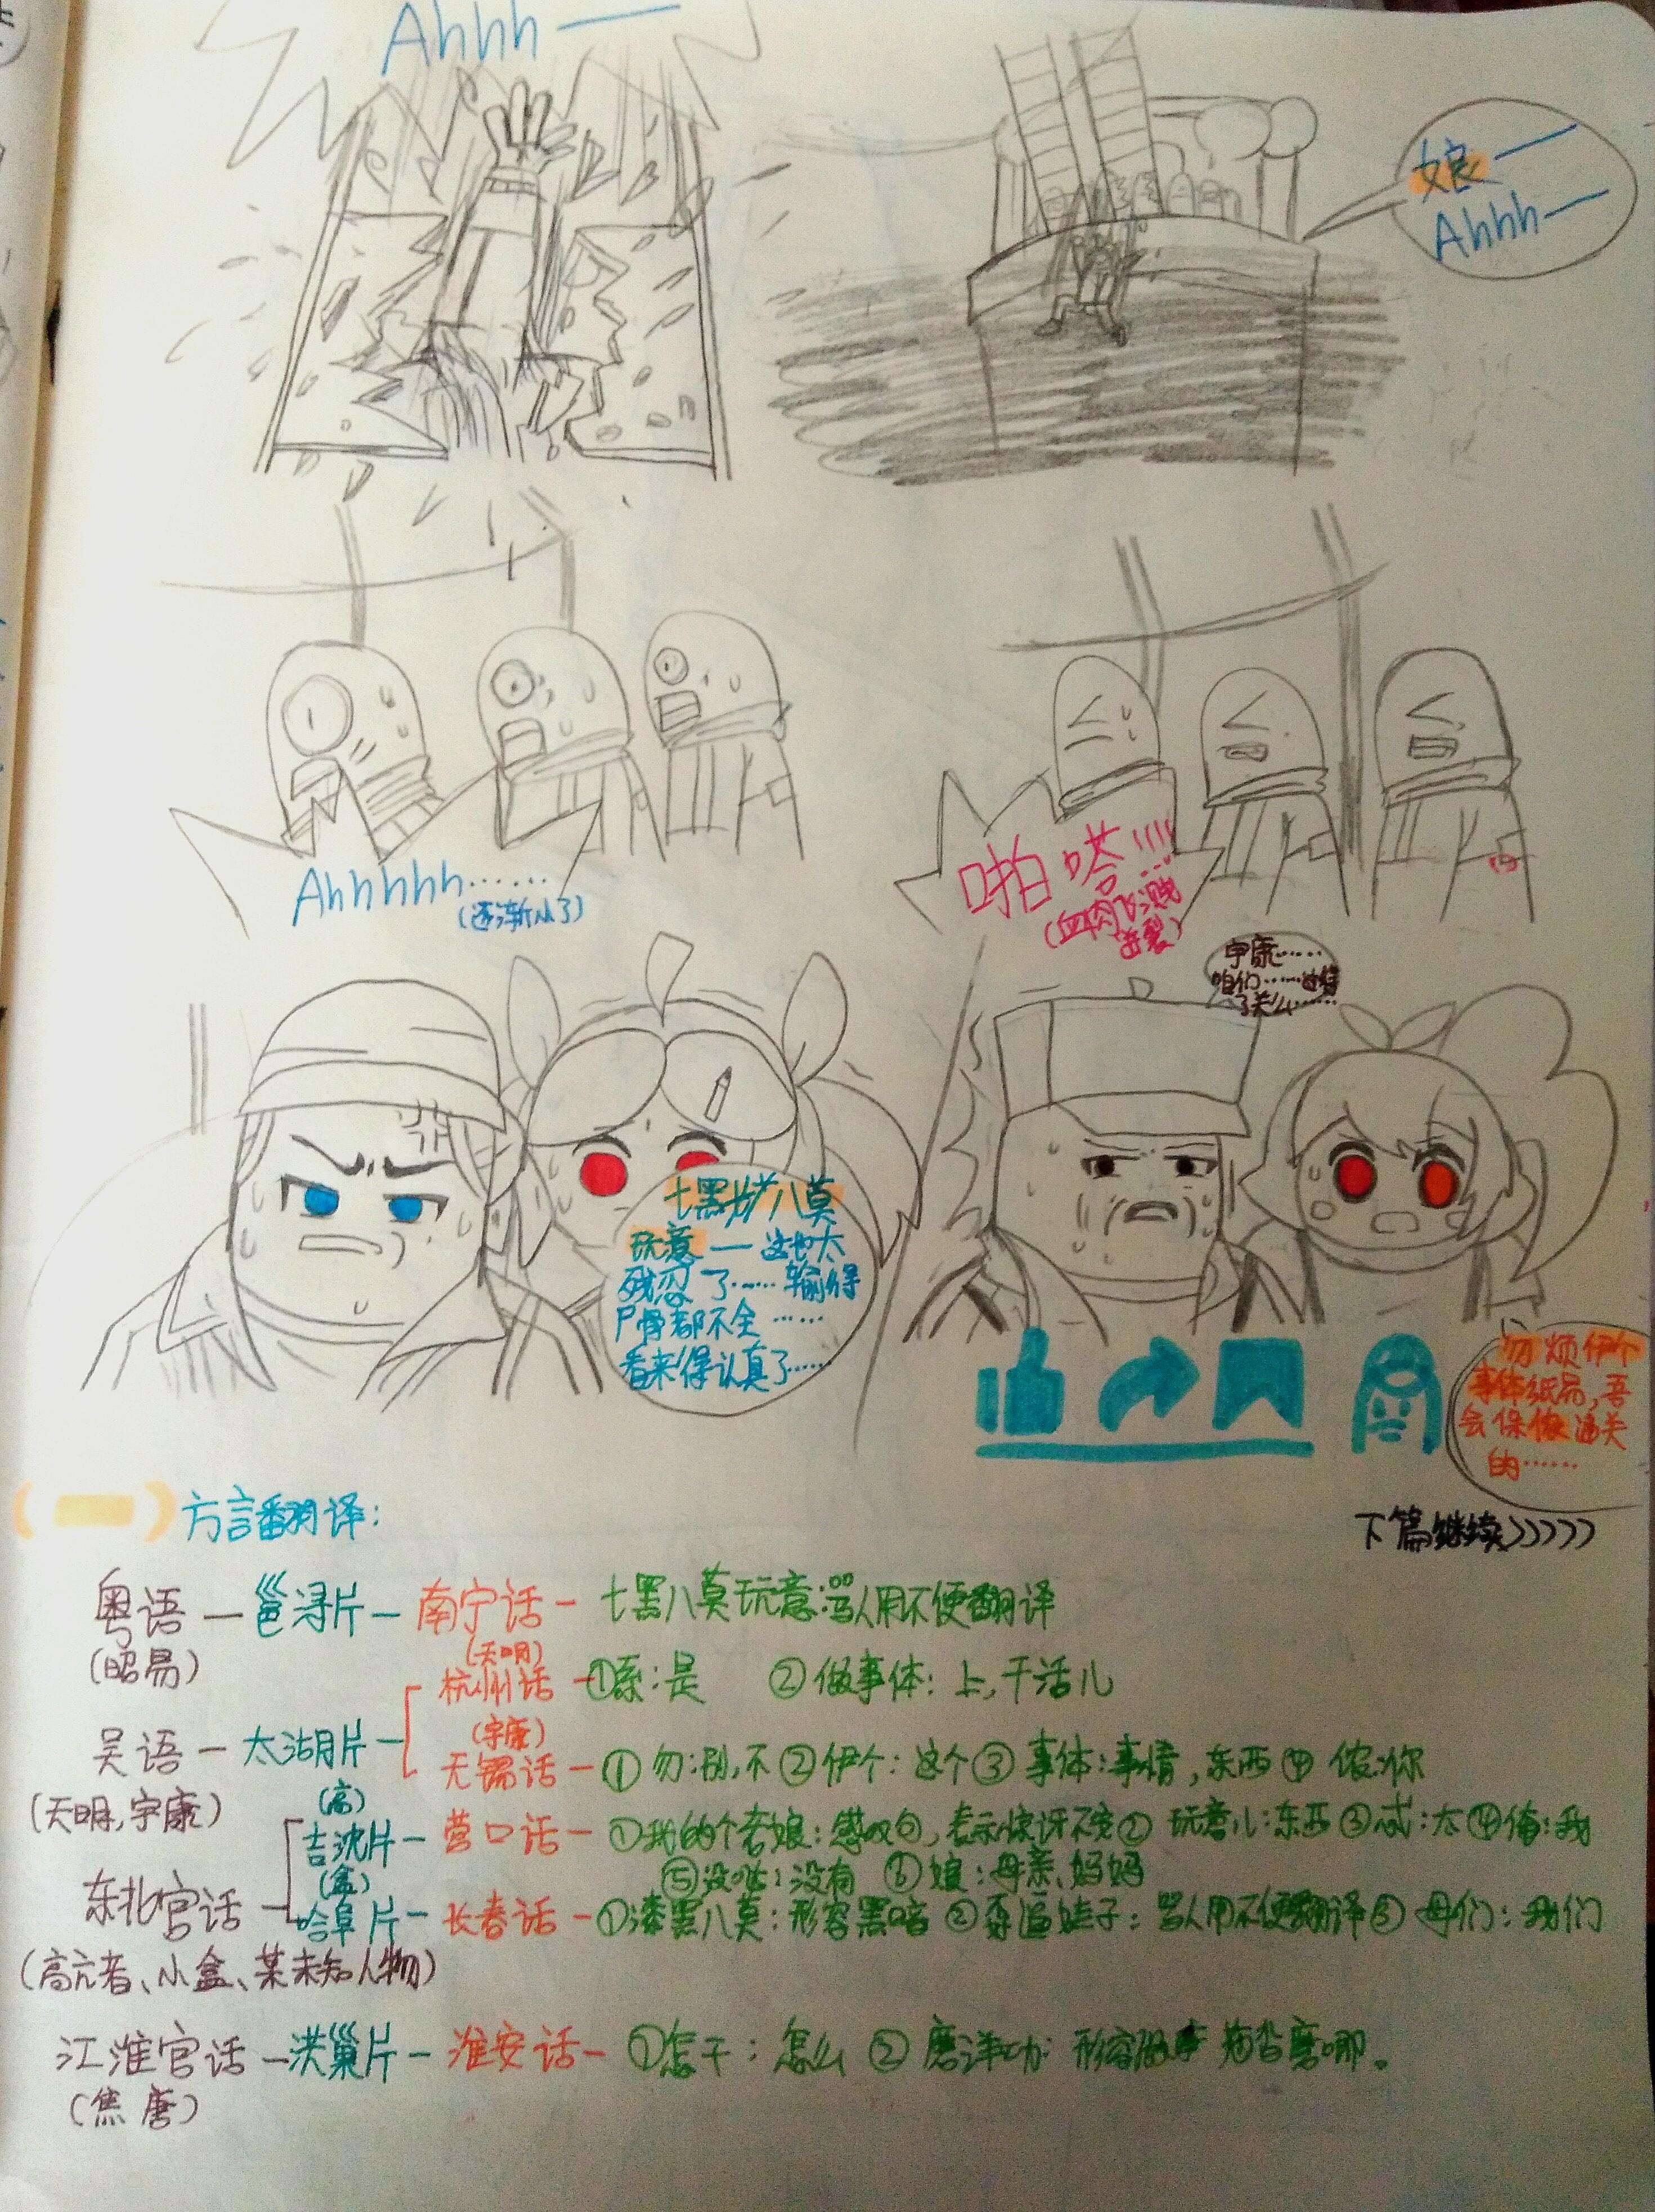 Ahhh—
娘—
Ahhh—
Ahhhhh……
(逐渐小了)
啪嗒!!!!
(血肉飞溅
迸裂)
宇康……
咱们……过得
了关么……
七黑八莫
玩意—这也太
残忍了……输得
尸骨都不全……
看来得认真了……
勿烦伊个
事体纸局,吾
会保侬通关
的……
下篇继续>>>>>
方言翻译:
粤语—邕浔片—南宁话—七黑八莫玩意:骂人用不便翻译
(昭易)
(天明)
杭州话—①系:是 ②做事体:上,干活儿
吴语—太湖片
(宇康)
无锡话—①勿:别,不②伊个:这个③事体:事情,东西④侬:你
(天明,宇康)
(高)
吉沈片—营口话—①我的个老娘:感叹句,表示惊讶不完②玩意儿:东西③忒:太④俺:我
⑤没咕:没有 ⑥娘:母亲,妈妈
(盒)
东北官话
哈阜片—长春话—①漆黑八莫:形容黑暗②瘪逼娃子:骂人用不便翻译③母们:我们
(高亢者、小盒、某未知人物)
江淮官话—洪巢片—淮安话—①怎干:怎么②磨洋功:形容做事拖沓磨唧。
(焦唐)